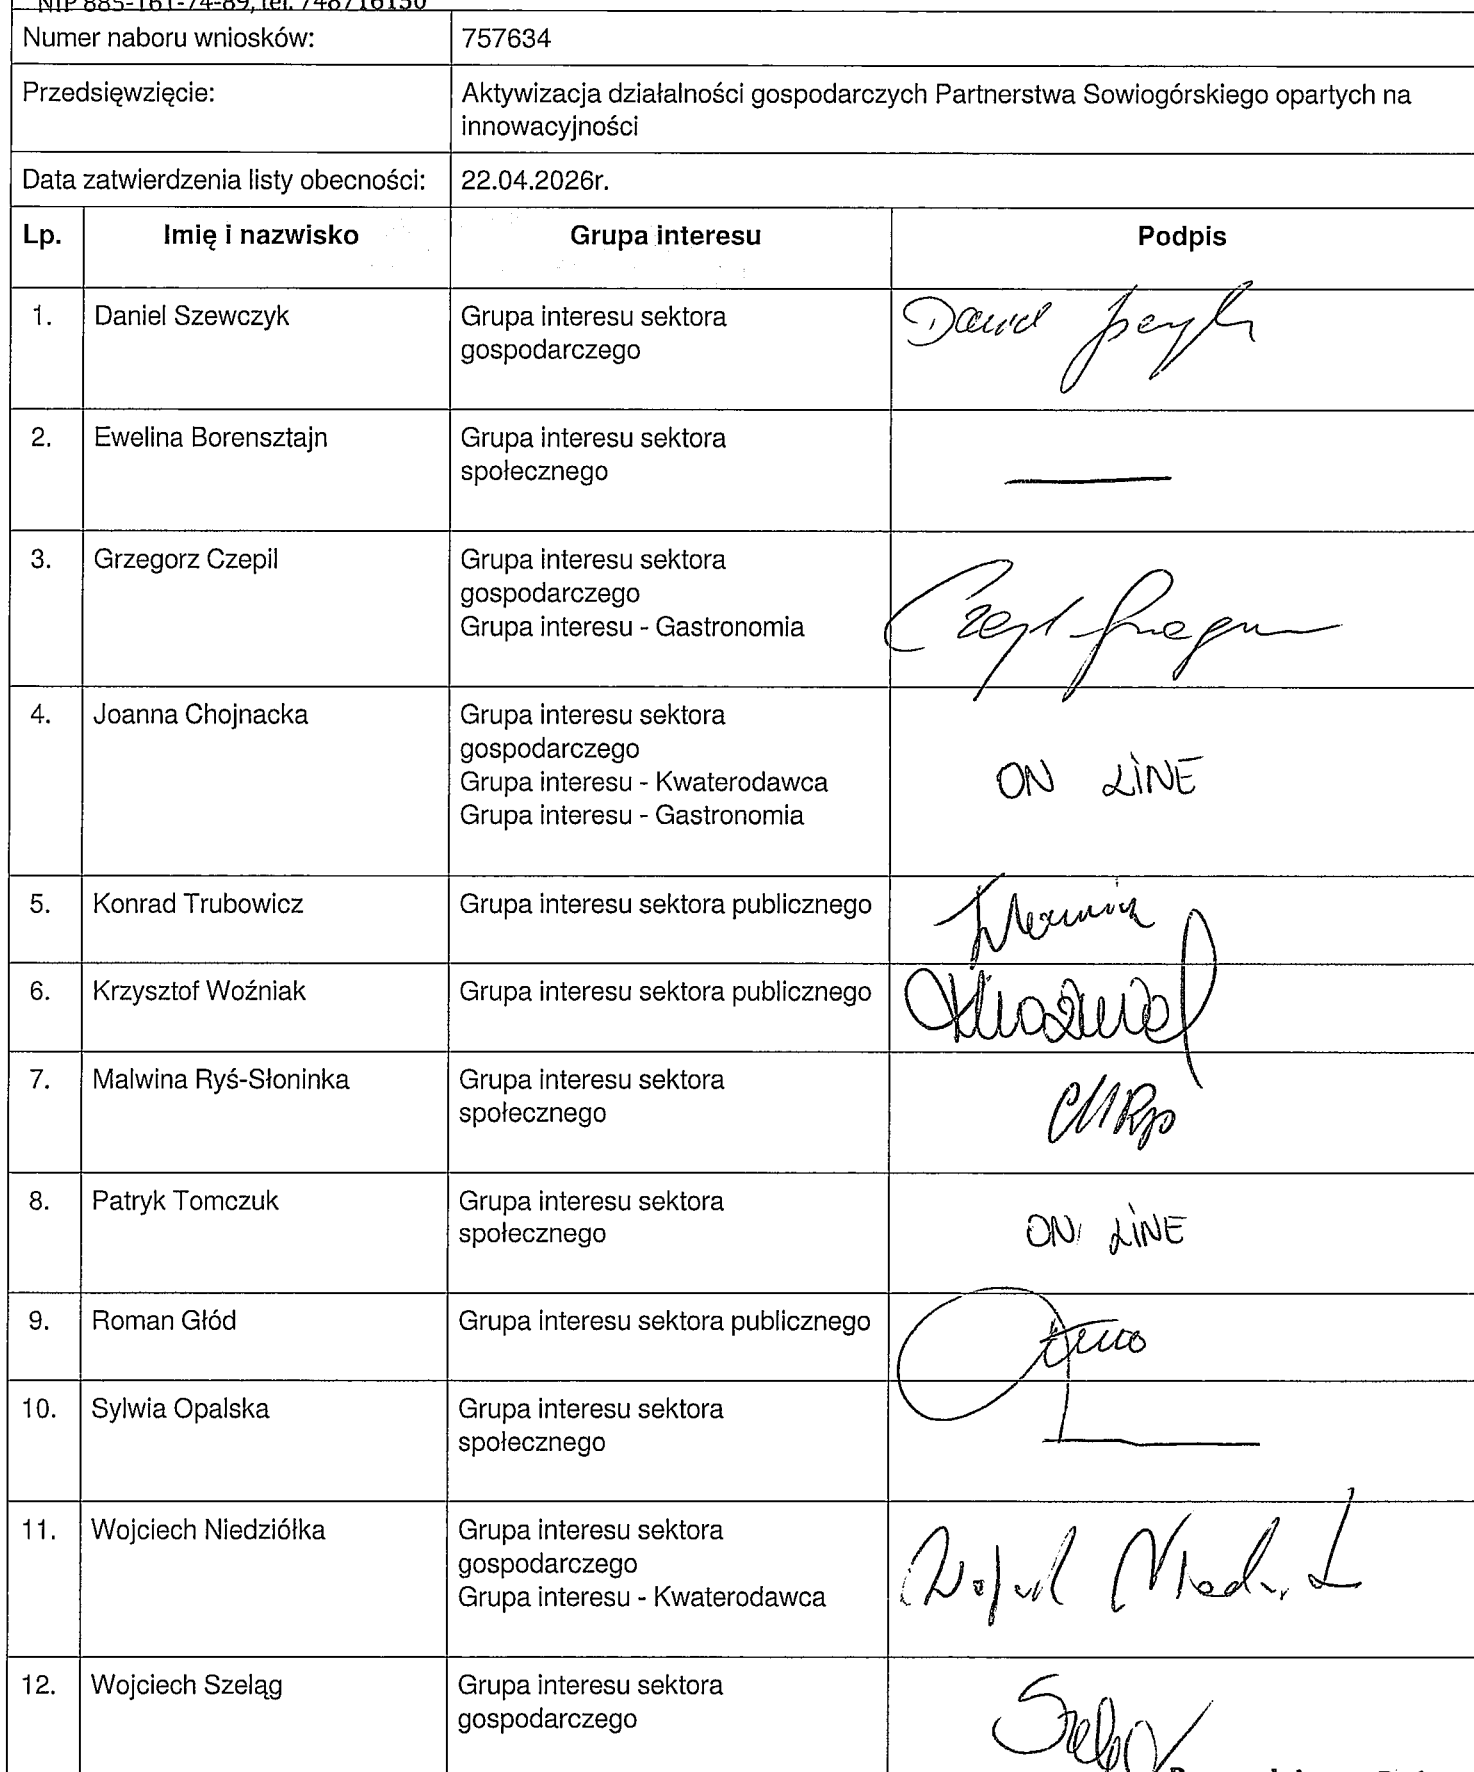 NIP 885-161-74-89, tel. 748716150
Numer naboru wniosków: 757634
Przedsięwzięcie: Aktywizacja działalności gospodarczych Partnerstwa Sowiogórskiego opartych na
innowacyjności
Data zatwierdzenia listy obecności: 22.04.2026r.
Lp. Imię i nazwisko Grupa interesu Podpis
1. Daniel Szewczyk Grupa interesu sektora
gospodarczego
2. Ewelina Borensztajn Grupa interesu sektora
społecznego
3. Grzegorz Czepil Grupa interesu sektora
gospodarczego
Grupa interesu - Gastronomia
4. Joanna Chojnacka Grupa interesu sektora
gospodarczego
Grupa interesu - Kwaterodawca
ON LINE
Grupa interesu - Gastronomia
5. Konrad Trubowicz Grupa interesu sektora publicznego
6. Krzysztof Woźniak Grupa interesu sektora publicznego
7. Malwina Ryś-Słoninka Grupa interesu sektora
społecznego
8. Patryk Tomczuk Grupa interesu sektora
społecznego ON LINE
9. Roman Głód Grupa interesu sektora publicznego
10. Sylwia Opalska Grupa interesu sektora
społecznego
11. Wojciech Niedziółka Grupa interesu sektora
gospodarczego
Grupa interesu - Kwaterodawca
12. Wojciech Szeląg Grupa interesu sektora
gospodarczego